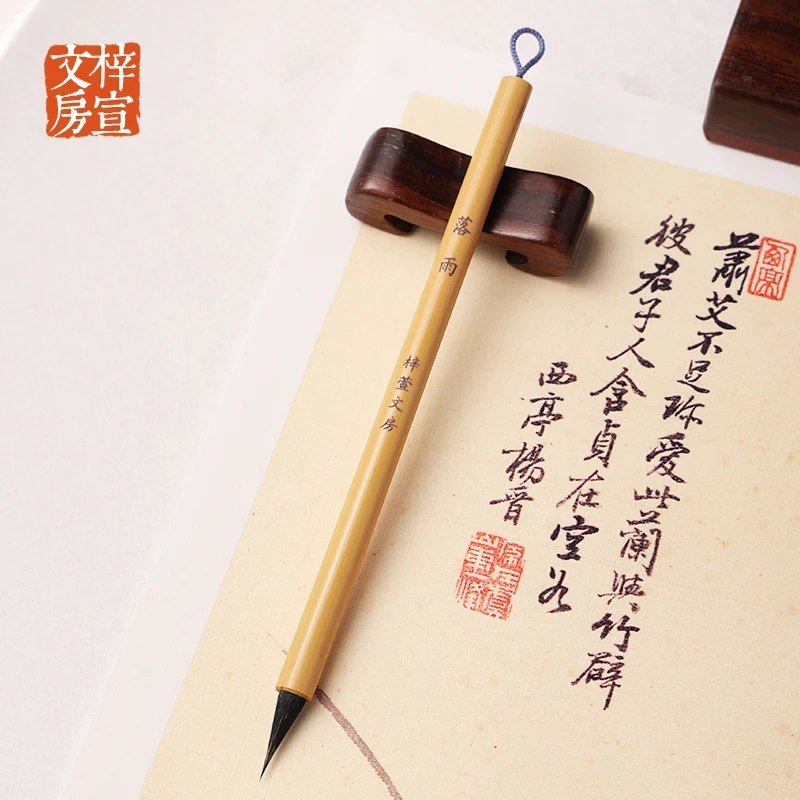 梓宣
文房
落雨
梓萱文房
蕭艾不足珎愛此蘭與竹辟
彼君子人含貞在空谷
西亭楊晉